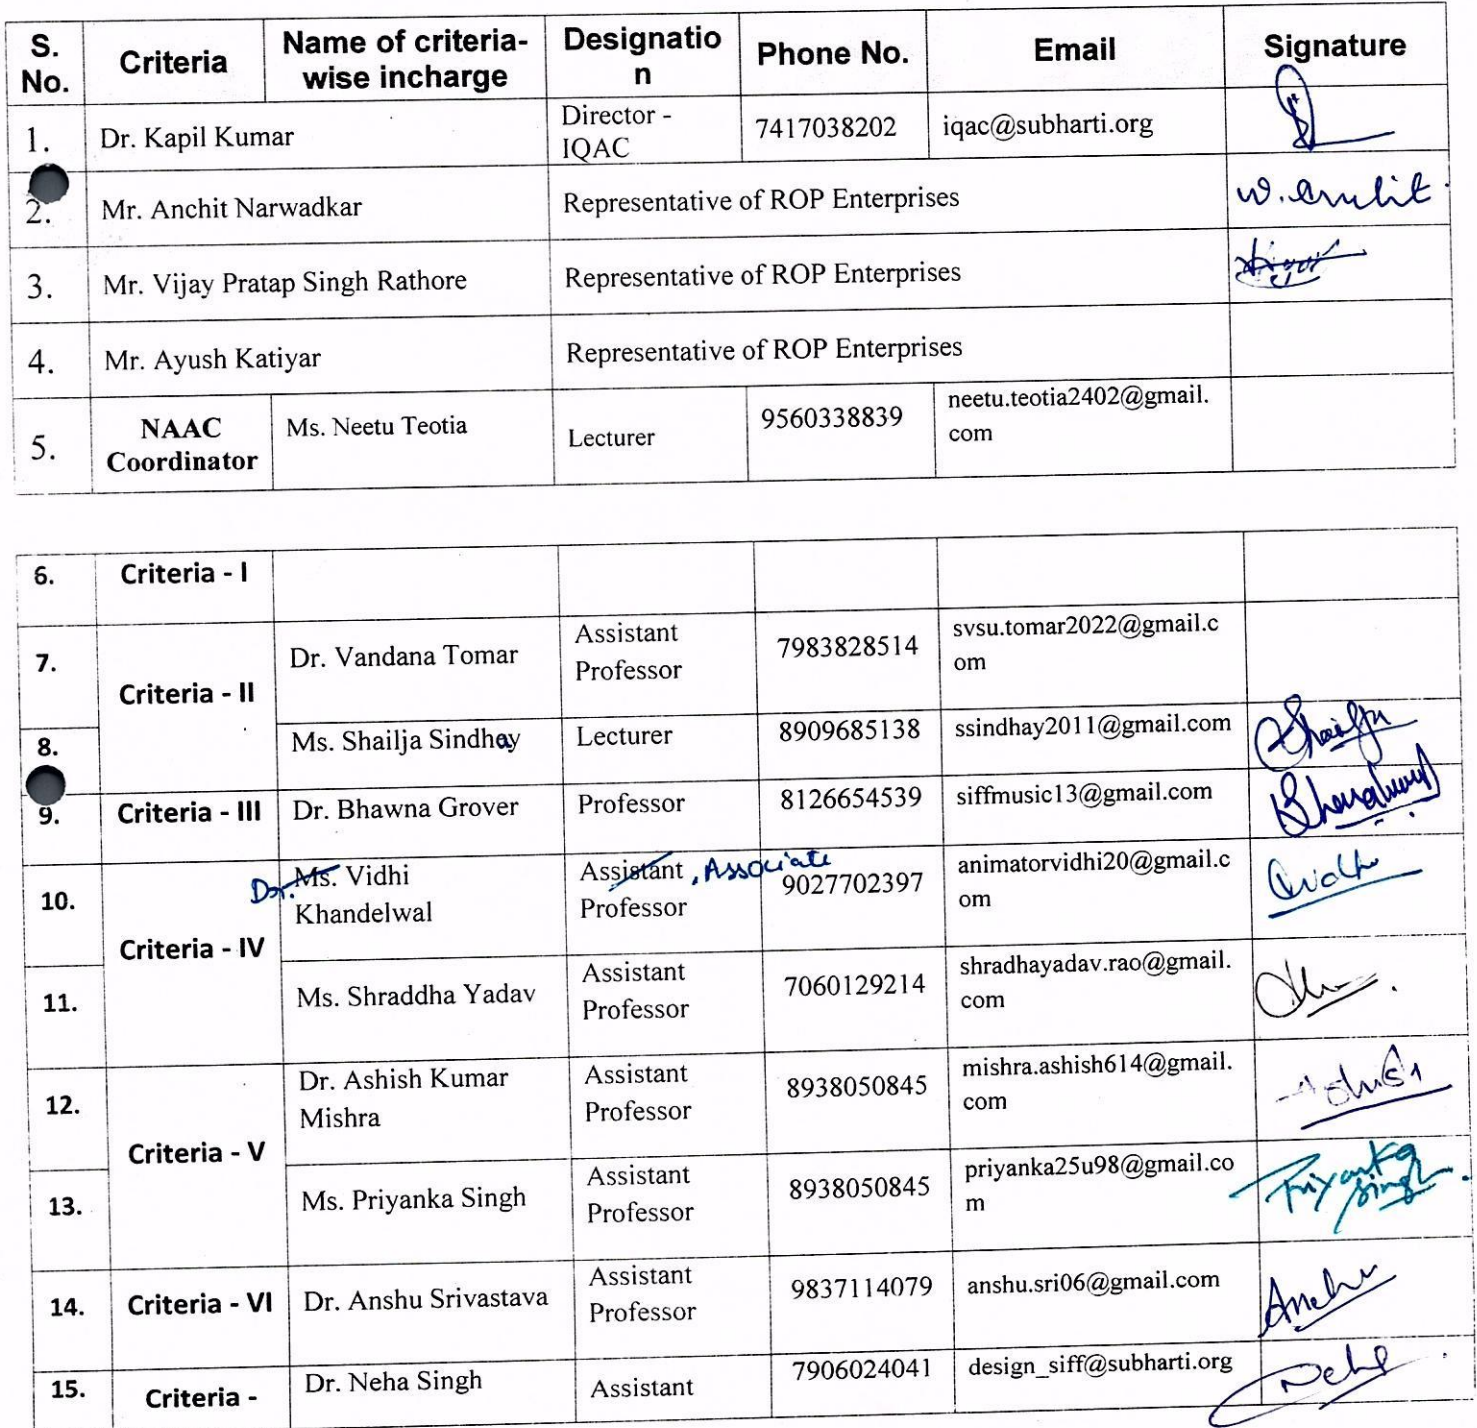 S. No. Criteria Name of criteria-wise incharge Designatio n Phone No. Email Signature
1. Dr. Kapil Kumar Director - IQAC 7417038202 iqac@subharti.org
2. Mr. Anchit Narwadkar Representative of ROP Enterprises
3. Mr. Vijay Pratap Singh Rathore Representative of ROP Enterprises
4. Mr. Ayush Katiyar Representative of ROP Enterprises
5. NAAC Coordinator Ms. Neetu Teotia Lecturer 9560338839 neetu.teotia2402@gmail. com
6. Criteria - I
7. Criteria - II Dr. Vandana Tomar Assistant Professor 7983828514 svsu.tomar2022@gmail.c om
8. Ms. Shailja Sindhay Lecturer 8909685138 ssindhay2011@gmail.com Shailja
9. Criteria - III Dr. Bhawna Grover Professor 8126654539 siffmusic13@gmail.com
10. Criteria - IV Dr. Ms. Vidhi Khandelwal Assistant, Associate Professor 9027702397 animatorvidhi20@gmail.c om
11. Ms. Shraddha Yadav Assistant Professor 7060129214 shradhayadav.rao@gmail. com
12. Criteria - V Dr. Ashish Kumar Mishra Assistant Professor 8938050845 mishra.ashish614@gmail. com
13. Ms. Priyanka Singh Assistant Professor 8938050845 priyanka25u98@gmail.co m Priyanka Singh
14. Criteria - VI Dr. Anshu Srivastava Assistant Professor 9837114079 anshu.sri06@gmail.com Anshu
15. Criteria - Dr. Neha Singh Assistant 7906024041 design_siff@subharti.org Neha